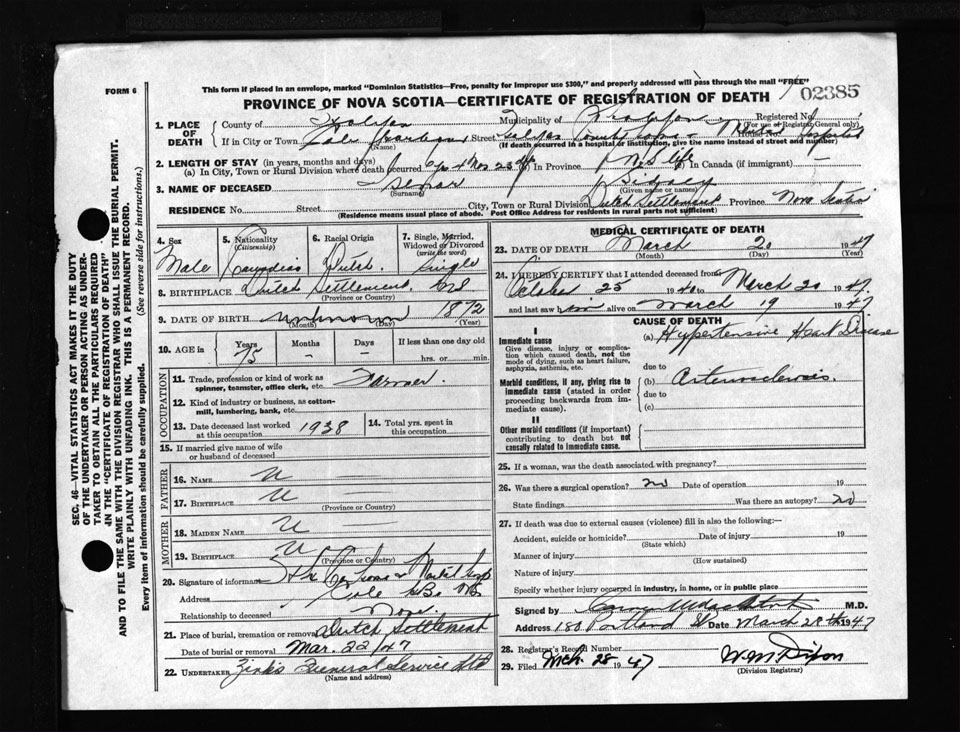 FORM 6
This form if placed in an envelope, marked "Dominion Statistics—Free, penalty for improper use $300," and properly addressed will pass through the mail "FREE"
PROVINCE OF NOVA SCOTIA—CERTIFICATE OF REGISTRATION OF DEATH
02385
1. PLACE OF DEATH
County of Halifax Municipality of Halifax Registered No.
(For use of Registrar General only)
If in City or Town Cole Harbour Street Halifax County Mental Hospital House No.
(Name) (If death occurred in a hospital or institution, give the name instead of street and number)
2. LENGTH OF STAY (in years, months and days)
(a) In City, Town or Rural Division where death occurred 6 yrs 4 mos 23 (b) In Province N.S life (c) In Canada (if immigrant) —
3. NAME OF DECEASED
(Surname) (Given name or names)
RESIDENCE No. Street City, Town or Rural Division Dutch Settlement Province Nova Scotia
(Residence means usual place of abode. Post Office Address for residents in rural parts not sufficient)
4. Sex Male
5. Nationality (Citizenship) Canadian
6. Racial Origin Dutch
7. Single, Married, Widowed or Divorced (write the word) Single
8. BIRTHPLACE Dutch Settlement
(Province or Country)
9. DATE OF BIRTH unknown 1872
(Month) (Day) (Year)
10. AGE in Years Months Days If less than one day old
75 — — hrs. or min.
OCCUPATION
11. Trade, profession or kind of work as spinner, teamster, office clerk, etc. Farmer.
12. Kind of industry or business, as cotton-mill, lumbering, bank, etc.
13. Date deceased last worked at this occupation 1938
14. Total yrs. spent in this occupation
15. If married give name of wife or husband of deceased
FATHER
16. NAME U
17. BIRTHPLACE U
(Province or Country)
MOTHER
18. MAIDEN NAME U
19. BIRTHPLACE U
(Province or Country)
20. Signature of informant
Address Cole
Relationship to deceased None.
21. Place of burial, cremation or removal Dutch Settlement
Date of burial or removal Mar. 22/47
22. UNDERTAKER Zink's Funeral Service Ltd
(Name and address)
MEDICAL CERTIFICATE OF DEATH
23. DATE OF DEATH March 20 1947
(Month) (Day) (Year)
24. I HEREBY CERTIFY that I attended deceased from
October 25 1940 to March 20 1947
and last saw him alive on March 19 1947
CAUSE OF DEATH
I
Immediate cause
Give disease, injury or complication which caused death, not the mode of dying, such as heart failure, asphyxia, asthenia, etc.
(a) Hypertensive Heart Disease
due to
Morbid conditions, if any, giving rise to immediate cause (stated in order proceeding backwards from immediate cause).
(b) Arteriosclerosis.
due to
(c)
II
Other morbid conditions (if important) contributing to death but not causally related to immediate cause.
25. If a woman, was the death associated with pregnancy?
26. Was there a surgical operation? no Date of operation 19
State findings Was there an autopsy? no
27. If death was due to external causes (violence) fill in also the following:—
Accident, suicide or homicide? Date of injury 19
(State which)
Manner of injury
(How sustained)
Nature of injury
Specify whether injury occurred in industry, in home, or in public place
Signed by M.D.
Address 180 Portland St Date March 28th 1947
28. Registrar's Record Number
29. Filed Mch. 28 1947 W.M. Dixon
(Division Registrar)
SEC. 46—VITAL STATISTICS ACT MAKES IT THE DUTY OF THE UNDERTAKER OR PERSON ACTING AS UNDERTAKER TO OBTAIN ALL THE PARTICULARS REQUIRED IN THE "CERTIFICATE OF REGISTRATION OF DEATH" AND TO FILE THE SAME WITH THE DIVISION REGISTRAR WHO SHALL ISSUE THE BURIAL PERMIT.
WRITE PLAINLY WITH UNFADING INK. THIS IS A PERMANENT RECORD.
Every item of information should be carefully supplied. (See reverse side for instructions.)